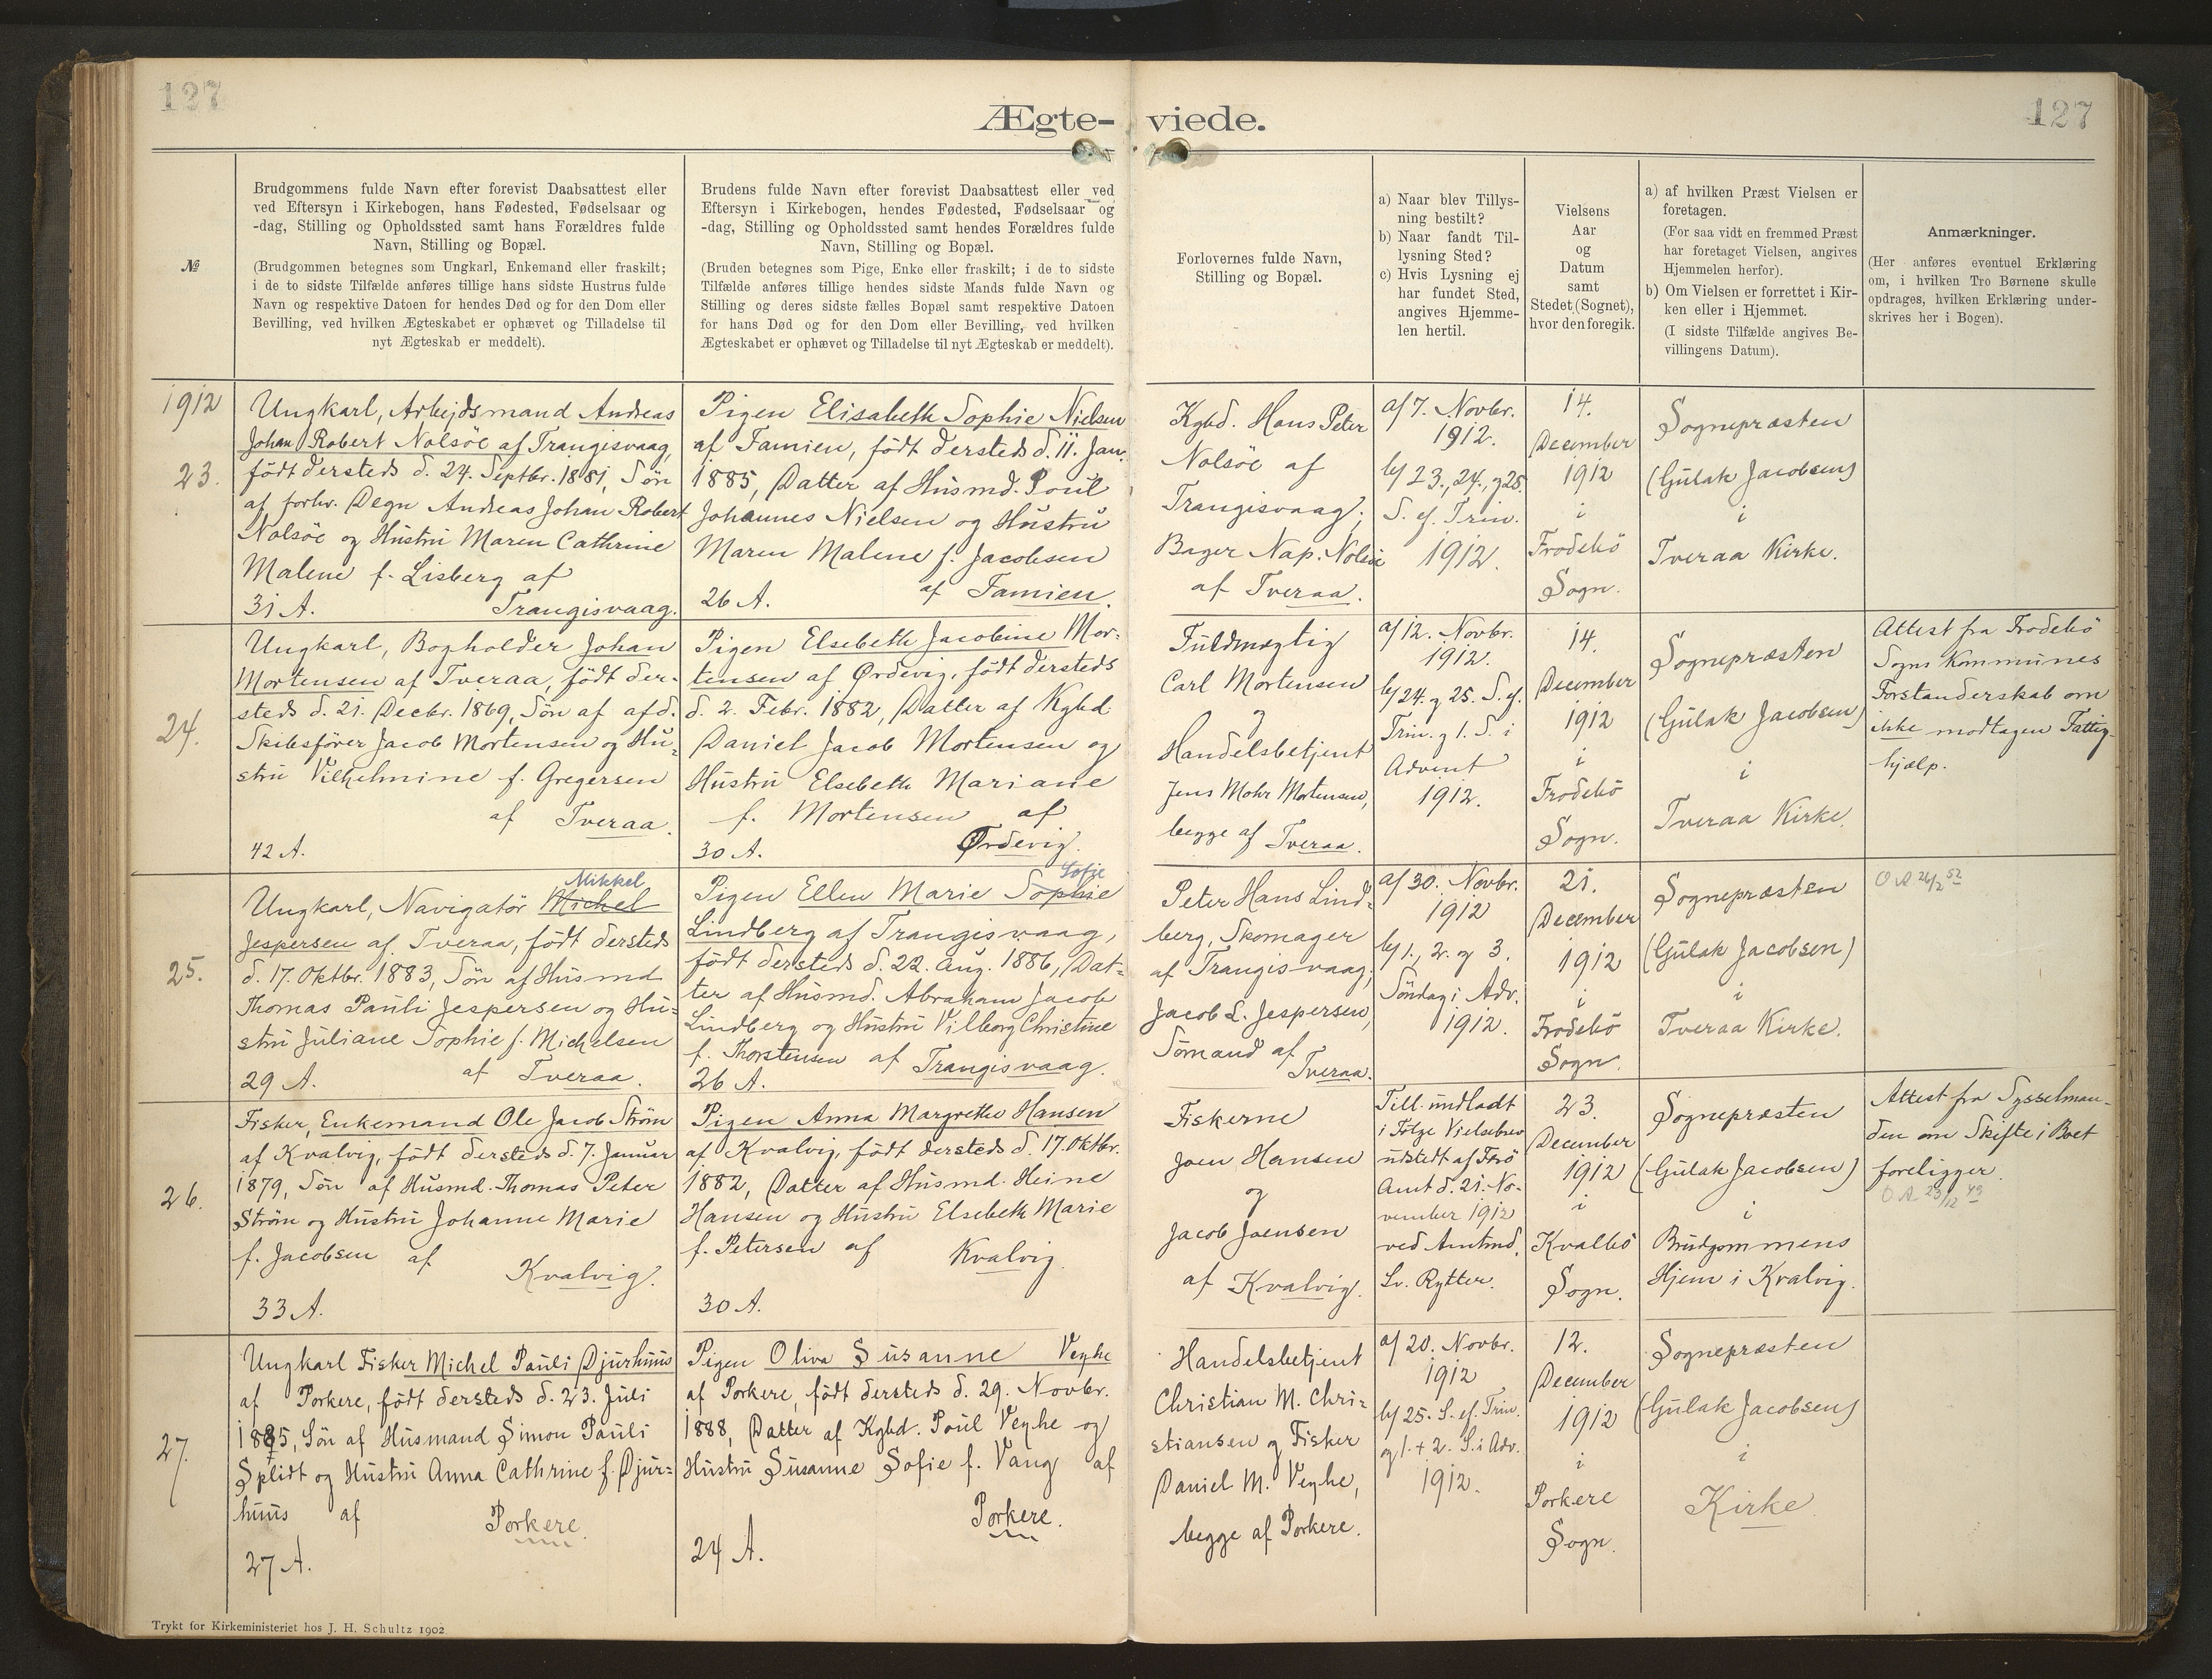 127
127
Ægte- viede.
№
Brudgommens fulde Navn efter forevist Daabsattest eller
ved Eftersyn i Kirkebogen, hans Fødested, Fødselsaar og
-dag, Stilling og Opholdssted samt hans Forældres fulde
Navn, Stilling og Bopæl.
(Brudgommen betegnes som Ungkarl, Enkemand eller fraskilt;
i de to sidste Tilfælde anføres tillige hans sidste Hustrus fulde
Navn og respektive Datoen for hendes Død og for den Dom eller
Bevilling, ved hvilken Ægteskabet er ophævet og Tilladelse til
nyt Ægteskab er meddelt).
Brudens fulde Navn efter forevist Daabsattest eller ved
Eftersyn i Kirkebogen, hendes Fødested, Fødselsaar og
-dag, Stilling og Opholdssted samt hendes Forældres fulde
Navn, Stilling og Bopæl.
(Bruden betegnes som Pige, Enke eller fraskilt; i de to sidste
Tilfælde anføres tillige hendes sidste Mands fulde Navn og
Stilling og deres sidste fælles Bopæl samt respektive Datoen
for hans Død og for den Dom eller Bevilling, ved hvilken
Ægteskabet er ophævet og Tilladelse til nyt Ægteskab er meddelt).
Forlovernes fulde Navn,
Stilling og Bopæl.
a) Naar blev Tillys-
ning bestilt?
b) Naar fandt Til-
lysning Sted?
c) Hvis Lysning ej
har fundet Sted,
angives Hjemme-
len hertil.
Vielsens
Aar
og
Datum
samt
Stedet (Sognet),
hvor den foregik.
a) af hvilken Præst Vielsen er
foretagen.
(For saa vidt en fremmed Præst
har foretaget Vielsen, angives
Hjemmelen herfor).
b) Om Vielsen er forrettet i Kir-
ken eller i Hjemmet.
(I sidste Tilfælde angives Be-
villingens Datum).
Anmærkninger.
(Her anføres eventuel Erklæring
om, i hvilken Tro Børnene skulle
opdrages, hvilken Erklæring under-
skrives her i Bogen).
1912
23.
Ungkarl, Arbejdsmand Andreas
Johan Robert Nolsöe af Trangisvaag,
födt dersteds d. 24. Septbr. 1881, Sön
af forhv. Degn Andreas Johan Robert
Nolsöe og Hustru Maren Cathrine
Malene f. Lisberg af
31 A. Trangisvaag.
Pigen Elisabeth Sophie Nielsen
af Famien, födt dersteds d. 11. Jan.
1885, Datter af Husmd. Poul
Johannes Nielsen og Hustru
Maren Malene f. Jacobsen
26 A. af Famien.
Kgbd. Hans Peter
Nolsöe af
Trangisvaag;
Bager Nap. Nolsöe
af Tveraa.
a/ 7. Novbr.
1912.
b/ 23., 24., og 25.
S. ef. Trin.
1912.
14.
December
1912
i
Frodebö
Sogn.
Sognepræsten
(Gulak Jacobsen)
i
Tveraa Kirke.
24.
Ungkarl, Bogholder Johan
Mortensen af Tveraa, födt der-
steds d. 21. Decbr. 1869, Sön af afd.
Skibsförer Jacob Mortensen og Hu-
stru Vilhelmine f. Gregersen
af Tveraa.
42 A.
Pigen Elsebeth Jacobine Mor-
tensen af Ørdevig, födt dersteds
d. 2. Febr. 1882, Datter af Kgbd.
Daniel Jacob Mortensen og
Hustru Elsebeth Mariane
f. Mortensen af
30 A. Ørdevig.
Fuldmægtig
Carl Mortensen
og
Handelsbetjent
Jens Mohr Mortensen,
begge af Tveraa.
a/ 12. Novbr.
1912.
b/ 24. og 25. S. ef.
Trin. og 1. S. i
Advent
1912.
14.
December
1912
i
Frodebö
Sogn.
Sognepræsten
(Gulak Jacobsen)
i
Tveraa Kirke.
Attest fra Frodebö
Sogns Kommunes
Forstanderskab om
ikke modtagen Fattig-
hjælp.
25.
Mikkel
Ungkarl, Navigatör Michel
Jespersen af Tveraa, födt dersteds
d. 17. Oktbr. 1883, Sön af Husmd
Thomas Pauli Jespersen og Hu-
stru Juliane Sophie f. Michelsen
29 A. af Tveraa.
Sofie
Pigen Ellen Marie Sophie
Lindberg af Trangisvaag,
födt dersteds d. 22. Aug. 1886, Dat-
ter af Husmd. Abraham Jacob
Lindberg og Hustru Vilborg Christine
f. Thorstensen af Trangisvaag.
26 A.
Peter Hans Lind-
berg, Skomager
af Trangisvaag,
Jacob L. Jespersen,
Sömand af
Tveraa.
a/ 30. Novbr.
1912
b/ 1., 2. og 3.
Söndag i Adv.
1912.
21.
December
1912
i
Frodebö
Sogn.
Sognepræsten
(Gulak Jacobsen)
i
Tveraa Kirke.
O A 26/2 52
26.
Fisker, Enkemand Ole Jacob Ström
af Kvalvig, födt dersteds d. 7. Januar
1879, Sön af Husmd. Thomas Peter
Ström og Hustru Johanne Marie
f. Jacobsen af
Kvalvig.
33 A.
Pigen Anna Margrethe Hansen
af Kvalvig, födt dersteds d. 17. Oktbr.
1882, Datter af Husmd. Heine
Hansen og Hustru Elsebeth Marie
f. Petersen af Kvalvig
30 A.
Fiskerne
Joen Hansen
og
Jacob Joensen
af Kvalvig.
Till. undladt
i Fölge Vielsebrev
udstedt af Færö
Amt d. 21. No-
vember 1912
ved Amtmd.
Sv. Rytter.
23.
December
1912
i
Kvalbö
Sogn.
Sognepræsten
(Gulak Jacobsen)
i
Brudgommens
Hjem i Kvalvig.
Attest fra Sysselman-
den om Skifte i Boet
foreligger.
O A 23/12 49
27.
Ungkarl Fisker Michel Pauli Djurhuus
af Porkere, födt dersteds d. 23. Juli
1885, Sön af Husmand Simon Pauli
Splidt og Hustru Anna Cathrine f. Djur-
huus af Porkere.
27 A.
Pigen Oliva Susanne Veyhe
af Porkere, födt dersteds d. 29. Novbr.
1888, Datter af Kgbd. Poul Veyhe og
Hustru Susanne Sofie f. Vang af
Porkere.
24 A.
Handelsbetjent
Christian M. Chri-
stiansen og Fisker
Daniel M. Veyhe,
begge af Porkere.
a/ 20. Novbr.
1912
b/ 25. S. ef. Trin.
og 1. + 2. S. i Adv.
1912.
12.
December
1912
i
Porkere
Sogn.
Sognepræsten
(Gulak Jacobsen)
i
Kirke
Trykt for Kirkeministeriet hos J. H. Schultz 1902